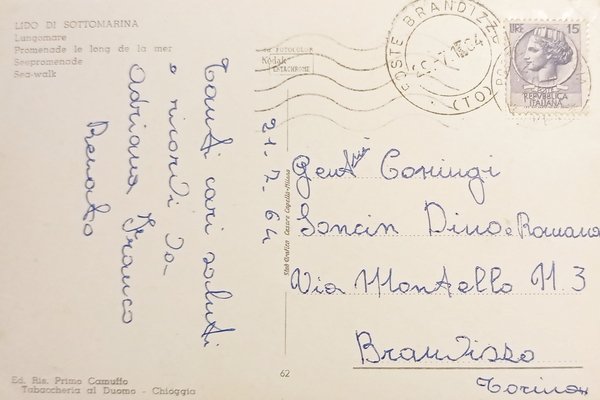 LIDO DI SOTTOMARINA
Lungomare
Promenade le long de la mer
Seepromenade
Sea-walk
FOTOCOLOR
Kodak
EKTACHROME
POSTE BRANDIZZO
(TO)
LIRE 15
REPUBBLICA
ITALIANA
Tanti cari saluti
e ricordi da
Adriana Franco
Renato
21-7-64
Gent.mi Coniugi
Soncin Dino e Romana
Via Montello N. 3
Brandizzo
Torino
Stab. Grafico Cesare Capello - Milano
62
Ed. Ris. Primo Camuffo
Tabaccheria al Duomo - Chioggia